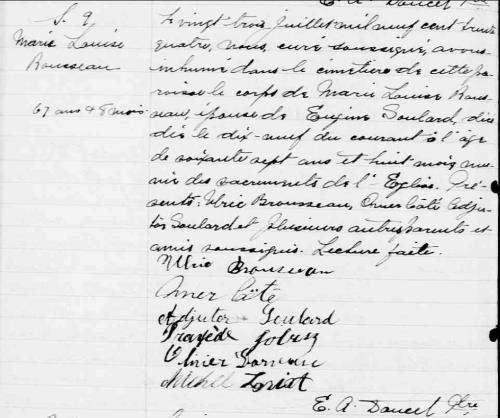 E. A. Doucet Ptre
S. 9
Marie Louise
Rousseau
67 ans & 8 mois
Le vingt trois juillet mil neuf cent trente
quatre, nous, curé soussigné, avons
inhumé dans le cimetière de cette pa-
roisse le corps de Marie Louise Rous-
seau, épouse de Eugène Soulard, décé-
dée le dix-neuf du courant à l'âge
de soixante sept ans et huit mois, mu-
nie des sacrements de l'Eglise. Pré-
sents: Ulric Brousseau, Omer Côté Adju-
tor Soulard et plusieurs autres parents et
amis soussignés. Lecture faite.
Ulric Brousseau
Omer Côté
Adjutor Soulard
E. A. Doucet Ptre